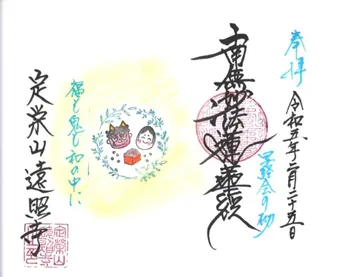 奉拝
令和五年二月二十五日
会の砌
南無妙法蓮華経
福も鬼も和の中に
定栄山 遠照寺